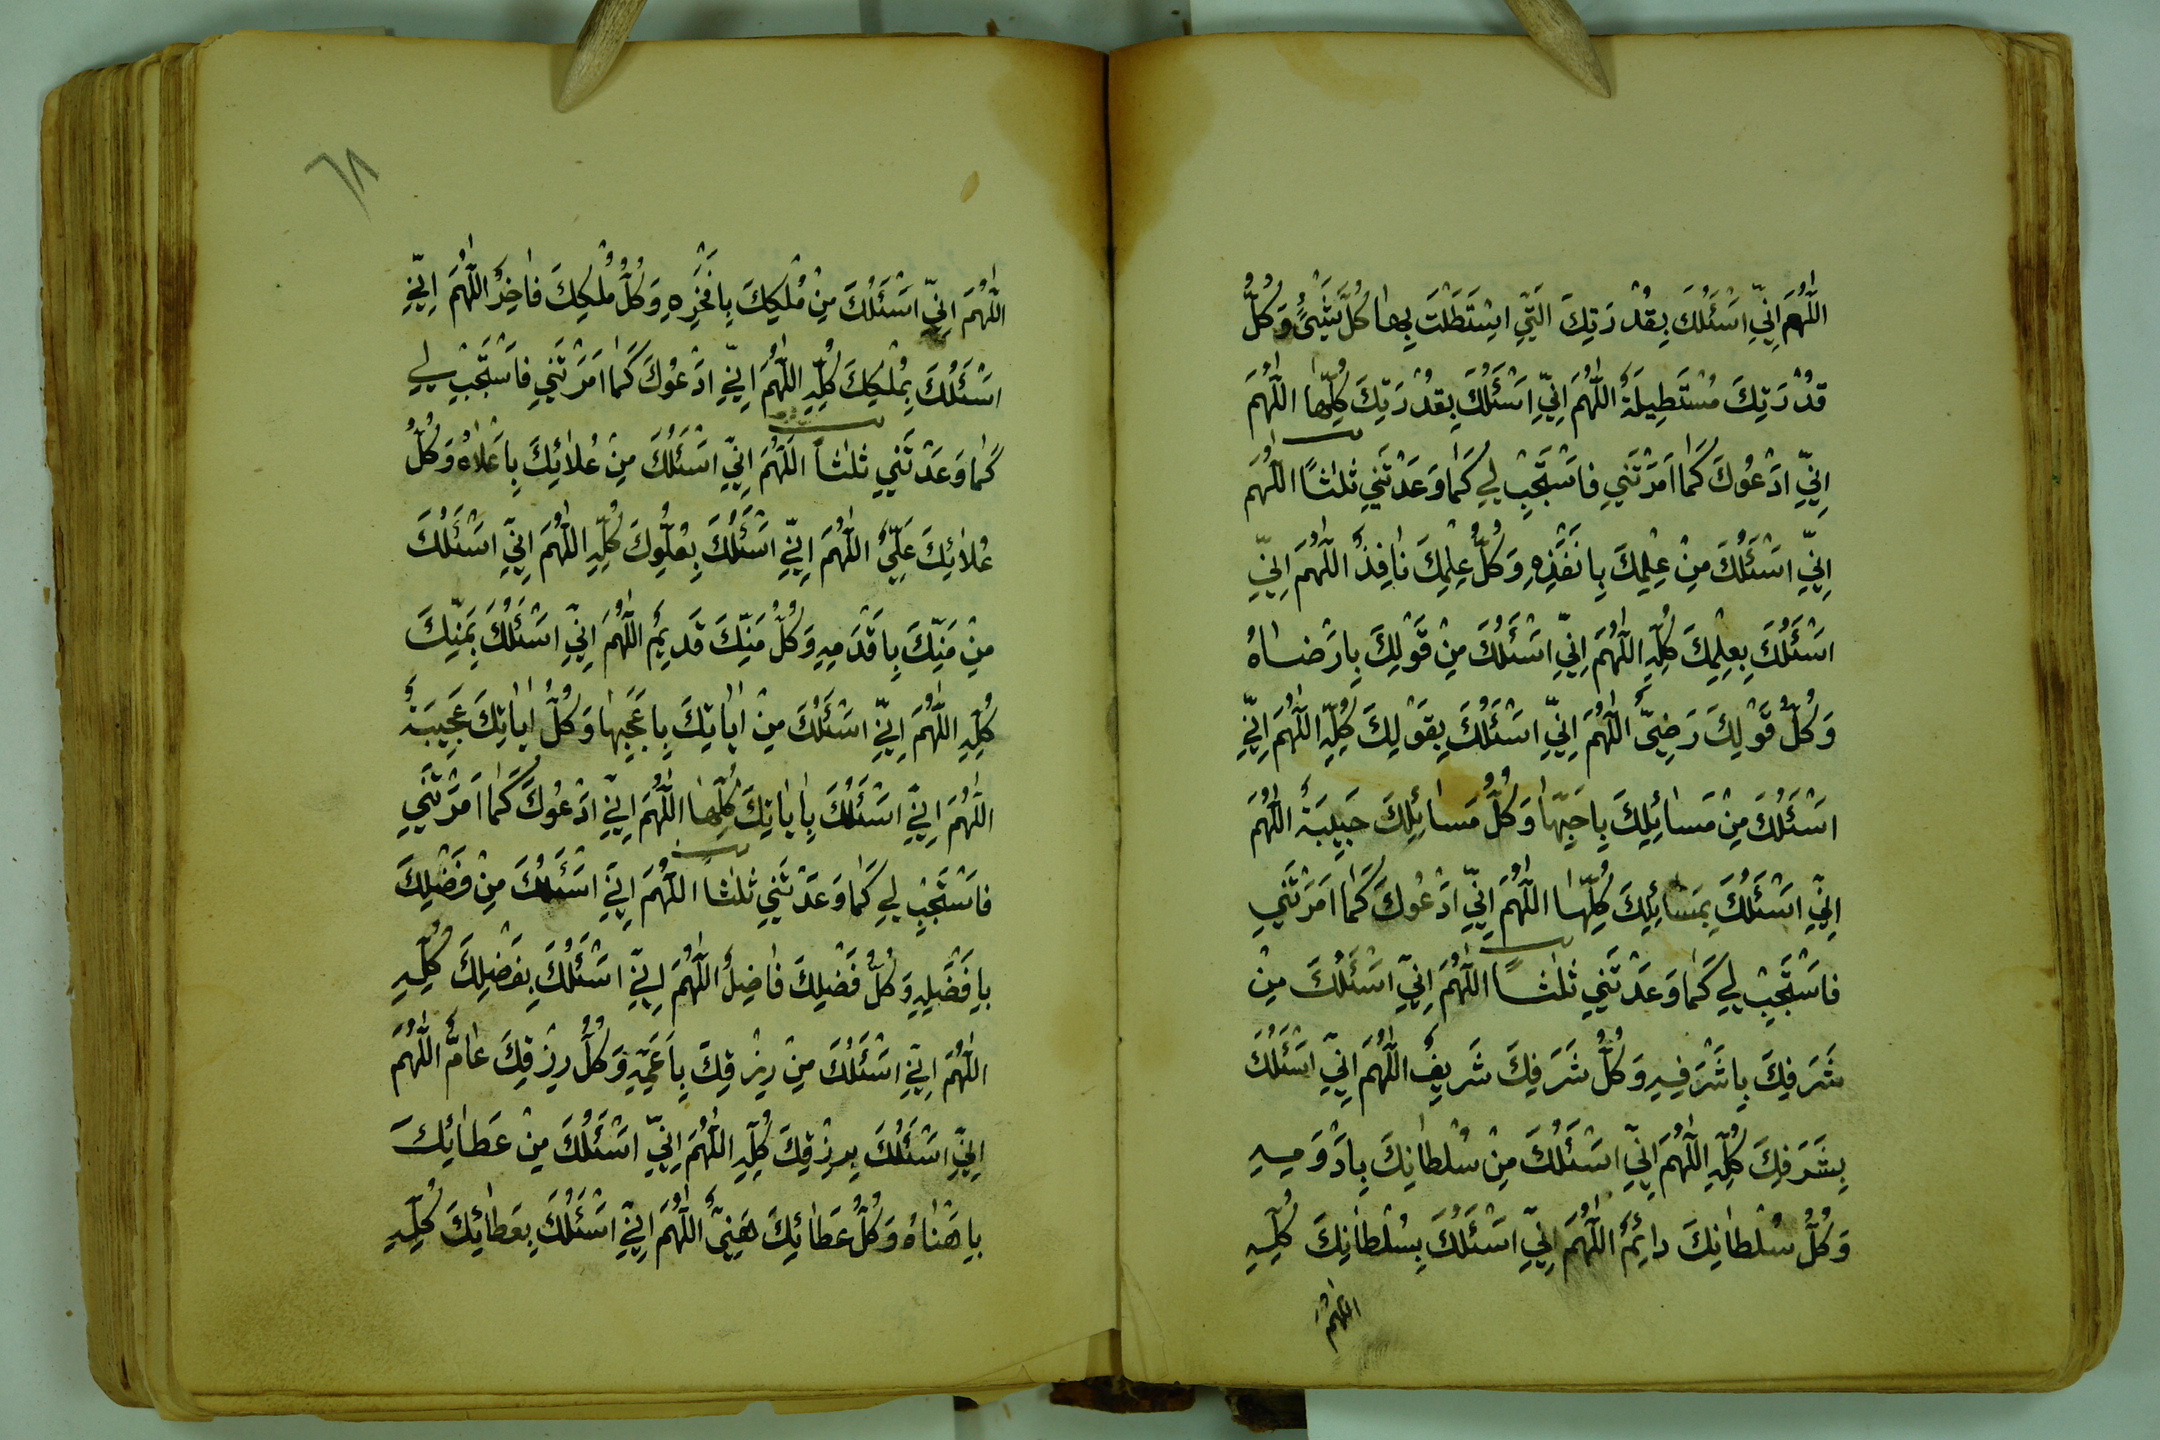 اللّٰهُمَ اِنّيِ اَسْئَلُكَ بِقُدْرَتِكَ الَتّيِ اسْتَطَلْتَ بِها كُلَّ شَيْئٍ وَكُلُّ
قُدْرَتِكَ مُسْتَطيِلَةٌ اللّٰهُمَ اِنّيِ اَسْئَلُكَ بِقُدْرَتِكَ كُلِّها اللّٰهُمَ
اِنّيِ اَدْعُوكَ كَمٰا اَمَرْتَنيِ فاَسْتَجِبْ ليِ كَمٰا وَعَدْتَنيِ ثلٰثاً اللّٰهُمَ
اِنّيِ اَسْئَلُكَ مِنْ عِلْمِكَ بِاَنْفَذِهِ وَكُلُّ عِلْمِكَ نٰافِذٌ اللّٰهُمَ اِنّيِ
اَسْئَلُكَ بِعِلْمِكَ كُلِّهِ اللّٰهُمَ اِنّيِ اَسْئَلُكَ مِنْ قَوْلِكَ بِاَرْضاٰهُ
وَكُلُّ قَوْلِكَ رَضِيٌّ اللّٰهُمَ اِنّيِ اَسْئَلُكَ بِقَوْلِكَ كُلِّهِ اللّٰهُمَ اِنّيِ
اَسْئَلُكَ مِنْ مَسٰائِلِكَ بِاَحَبِّهٰا وَكُلُّ مَسٰائِلِكَ حَبيِبَةٌ اللّٰهُمَ
اِنّيِ اَسْئَلُكَ بِمَسٰائِلِكَ كُلِّهٰا اللّٰهُمَ اِنّيِ اَدْعُوكَ كَمٰا اَمَرْتَنيِ
فاَسْتَجِبْ ليِ كَمٰا وَعَدْتَنيِ ثلٰثاً اللّٰهُمَ اِنّيِ اَسْئَلُكَ مِنْ
شَرَفِكَ بِاَشْرَفِهِ وَكُلُّ شَرَفِكَ شَريِفٌ اللّٰهُمَ اِنّيِ اَسْئَلُكَ
بِشَرَفِكَ كُلِّهِ اللّٰهُمَ اِنّيِ اَسْئَلُكَ مِنْ سُلْطٰانِكَ بِاَدْوَمِهِ
وَكُلُّ سُلْطٰانِكَ دٰائِمٌ اللّٰهُمَ اِنّيِ اَسْئَلُكَ بِسُلْطٰانِكَ كُلِّهِ
اللّٰهُمَ
٦٨
اللّٰهُمَ اِنّيِ اَسْئَلُكَ مِنْ مُلْكِكَ بِاَفْخَرِهِ وَكُلُّ مُلْكِكَ فٰاخِرٌ اللّٰهُمَ اِنّيِ
اَسْئَلُكَ بِمُلْكِكَ كُلِّهِ اللّٰهُمَ اِنّيِ اَدْعُوكَ كَمٰا اَمَرْتَنيِ فاَسْتَجِبْ ليِ
كَمٰا وَعَدْتَنيِ ثلٰثاً اللّٰهُمَ اِنّيِ اَسْئَلُكَ مِنْ عُلاٰئِكَ بِاَعْلاٰهُ وَكُلُّ
عُلاٰئِكَ عَلِيٌّ اللّٰهُمَ اِنّيِ اَسْئَلُكَ بِعُلُوِّكَ كُلِّهِ اللّٰهُمَ اِنّيِ اَسْئَلُكَ
مِنْ مَنِّكَ بِاَقْدَمِهِ وَكُلُّ مَنِّكَ قَديِمٌ اللّٰهُمَ اِنّيِ اَسْئَلُكَ بِمَنِّكَ
كُلِّهِ اللّٰهُمَ اِنّيِ اَسْئَلُكَ مِنْ اٰيٰاتِكَ بِاَعْجَبِهٰا وَكُلُّ اٰيٰاتِكَ عَجيِبَةٌ
اللّٰهُمَ اِنّيِ اَسْئَلُكَ بِاٰيٰاتِكَ كُلِّهٰا اللّٰهُمَ اِنّيِ اَدْعُوكَ كَمٰا اَمَرْتَنيِ
فاَسْتَجِبْ ليِ كَمٰا وَعَدْتَنيِ ثلٰثاً اللّٰهُمَ اِنّيِ اَسْئَلُكَ مِنْ فَضْلِكَ
بِاَفْضَلِهِ وَكُلُّ فَضْلِكَ فٰاضِلٌ اللّٰهُمَ اِنّيِ اَسْئَلُكَ بِفَضْلِكَ كُلِّهِ
اللّٰهُمَ اِنّيِ اَسْئَلُكَ مِنْ رِزْقِكَ بِاَعَمِّهِ وَكُلُّ رِزْقِكَ عٰامٌّ اللّٰهُمَ
اِنّيِ اَسْئَلُكَ بِرِزْقِكَ كُلِّهِ اللّٰهُمَ اِنّيِ اَسْئَلُكَ مِنْ عَطٰائِكَ
بِاَهْنٰاهُ وَكُلُّ عَطٰائِكَ هَنيِءٌ اللّٰهُمَ اِنّيِ اَسْئَلُكَ بِعَطٰائِكَ كُلِّهِ